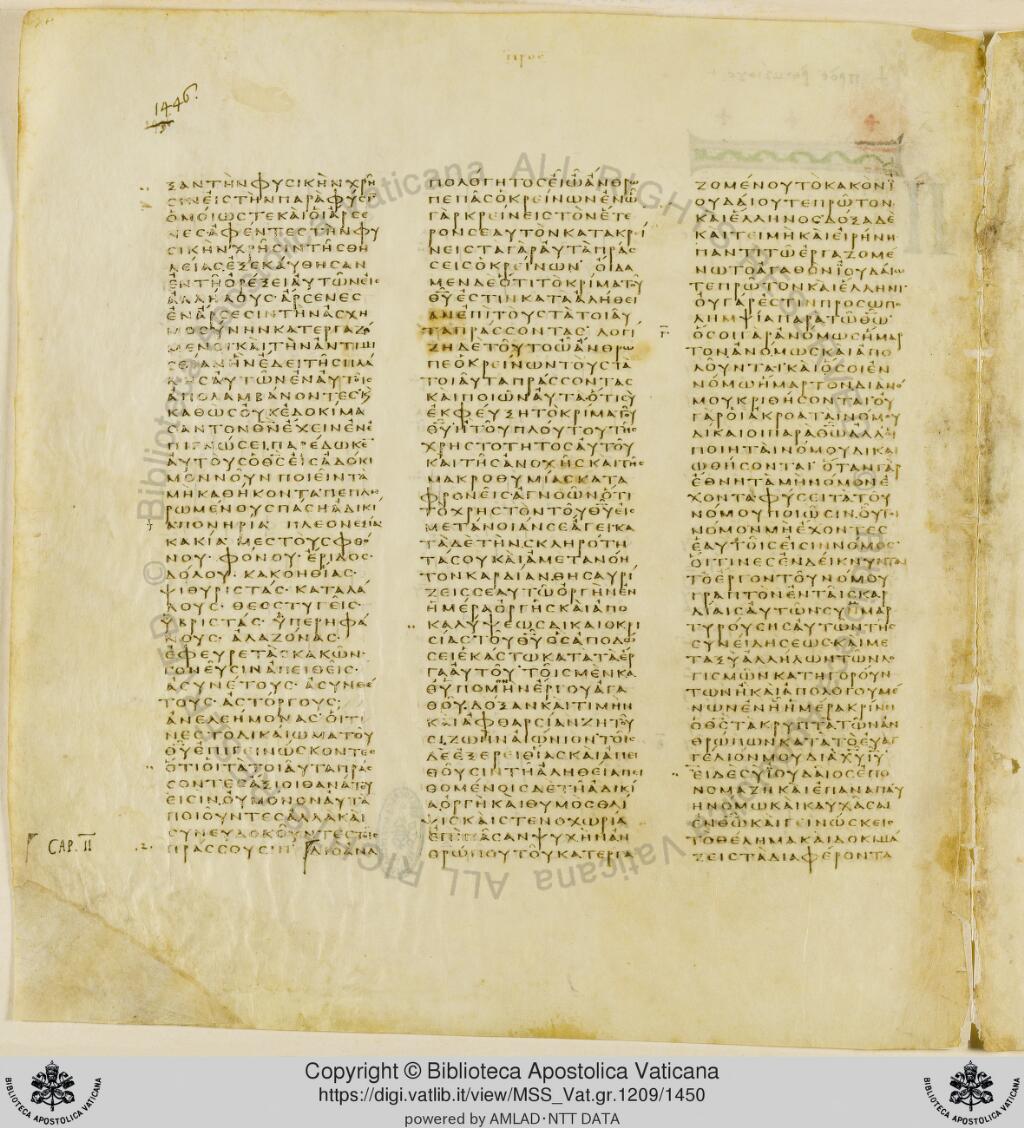 1446
ΣΑΝΤΗΝΦΥΣΙΚΗΝΧΡΗ
ΣΙΝΕΙΣΤΗΝΠΑΡΑΦΥΣΙ
ΟΜΟΙΩΣΤΕΚΑΙΟΙΑΡΣΕ
ΝΕΣΑΦΕΝΤΕΣΤΗΝΦΥ
ΣΙΚΗΝΧΡΗΣΙΝΤΗΣΘΗ
ΛΕΙΑΣΕΞΕΚΑΥΘΗΣΑΝ
ΕΝΤΗΟΡΕΞΕΙΑΥΤΩΝΕΙΣ
ΑΛΛΗΛΟΥΣ·ΑΡΣΕΝΕΣ
ΕΝΑΡΣΕΣΙΝΤΗΝΑΣΧΗ
ΜΟΣΥΝΗΝΚΑΤΕΡΓΑΖΟ
ΜΕΝΟΙΚΑΙΤΗΝΑΝΤΙΜΙ
ΣΘΙΑΝΗΝΕΔΕΙΤΗΣΠΛΑ
ΝΗΣΑΥΤΩΝΕΝΑΥΤΟΙΣ
ΑΠΟΛΑΜΒΑΝΟΝΤΕΣΚ
ΚΑΘΩΣΟΥΚΕΔΟΚΙΜΑ
ΣΑΝΤΟΝΘΝΕΧΕΙΝΕΝΕ
ΠΙΓΝΩΣΕΙΠΑΡΕΔΩΚΕ
ΑΥΤΟΥΣΟΘΣΕΙΣΑΔΟΚΙ
ΜΟΝΝΟΥΝΠΟΙΕΙΝΤΑ
ΜΗΚΑΘΗΚΟΝΤΑΠΕΠΛΗ
ΡΩΜΕΝΟΥΣΠΑΣΗΑΔΙΚΙ
ΑΠΟΝΗΡΙΑ ΠΛΕΟΝΕΞΙΑ
ΚΑΚΙΑ ΜΕΣΤΟΥΣΦΘΟ
ΝΟΥ· ΦΟΝΟΥ· ΕΡΙΔΟΣ·
ΔΟΛΟΥ· ΚΑΚΟΗΘΙΑΣ·
ΨΙΘΥΡΙΣΤΑΣ· ΚΑΤΑΛΑ
ΛΟΥΣ· ΘΕΟΣΤΥΓΕΙΣ·
ΥΒΡΙΣΤΑΣ· ΥΠΕΡΗΦΑ
ΝΟΥΣ· ΑΛΑΖΟΝΑΣ·
ΕΦΕΥΡΕΤΑΣΚΑΚΩΝ·
ΓΟΝΕΥΣΙΝΑΠΕΙΘΕΙΣ·
ΑΣΥΝΕΤΟΥΣ· ΑΣΥΝΘΕ
ΤΟΥΣ· ΑΣΤΟΡΓΟΥΣ·
ΑΝΕΛΕΗΜΟΝΑΣ·ΟΙΤΙ
ΝΕΣΤΟΔΙΚΑΙΩΜΑΤΟΥ
ΘΥΕΠΙΓΕΙΝΩΣΚΟΝΤΕΣ
ΟΤΙΟΙΤΑΤΟΙΑΥΤΑΠΡΑΣ
ΣΟΝΤΕΣΑΞΙΟΙΘΑΝΑΤΟΥ
ΕΙΣΙΝ,ΟΥΜΟΝΟΝΑΥΤΑ
ΠΟΙΟΥΝΤΕΣΑΛΛΑΚΑΙ
ΣΥΝΕΥΔΟΚΟΥΝΤΕΣΤΟΙΣ
CAP. II
ΠΡΑΣΣΟΥΣΙΝ ΔΙΟΑΝΑ
ΠΟΛΟΓΗΤΟΣΕΙΩΑΝΘΡΩ
ΠΕΠΑΣΟΚΡΕΙΝΩΝΕΝΩ
ΓΑΡΚΡΕΙΝΕΙΣΤΟΝΕΤΕ
ΡΟΝΣΕΑΥΤΟΝΚΑΤΑΚΡΙ
ΝΕΙΣΤΑΓΑΡΑΥΤΑΠΡΑΣ
ΣΕΙΣΟΚΡΕΙΝΩΝ· ΟΙΔΑ
ΜΕΝΔΕΟΤΙΤΟΚΡΙΜΑΤΟΥ
ΘΥΕΣΤΙΝΚΑΤΑΑΛΗΘΕΙ
ΑΝΕΠΙΤΟΥΣΤΑΤΟΙΑΥ
ΤΑΠΡΑΣΣΟΝΤΑΣ ΛΟΓΙ
ΖΗΔΕΤΟΥΤΟΩΑΝΘΡΩ
ΠΕΟΚΡΕΙΝΩΝΤΟΥΣΤΑ
ΤΟΙΑΥΤΑΠΡΑΣΣΟΝΤΑΣ
ΚΑΙΠΟΙΩΝΑΥΤΑΟΤΙΣΥ
ΕΚΦΕΥΞΗΤΟΚΡΙΜΑΤΟΥ
ΘΥΗΤΟΥΠΛΟΥΤΟΥΤΗΣ
ΧΡΗΣΤΟΤΗΤΟΣΑΥΤΟΥ
ΚΑΙΤΗΣΑΝΟΧΗΣΚΑΙΤΗΣ
ΜΑΚΡΟΘΥΜΙΑΣΚΑΤΑ
ΦΡΟΝΕΙΣΑΓΝΟΩΝΟΤΙ
ΤΟΧΡΗΣΤΟΝΤΟΥΘΥΕΙΣ
ΜΕΤΑΝΟΙΑΝΣΕΑΓΕΙΚΑ
ΤΑΔΕΤΗΝΣΚΛΗΡΟΤΗ
ΤΑΣΟΥΚΑΙΑΜΕΤΑΝΟΗ
ΤΟΝΚΑΡΔΙΑΝΘΗΣΑΥΡΙ
ΖΕΙΣΣΕΑΥΤΩΟΡΓΗΝΕΝ
ΗΜΕΡΑΟΡΓΗΣΚΑΙΑΠΟ
ΚΑΛΥΨΕΩΣΔΙΚΑΙΟΚΡΙ
ΣΙΑΣΤΟΥΘΥΟΣΑΠΟΔΩ
ΣΕΙΕΚΑΣΤΩΚΑΤΑΤΑΕΡ
ΓΑΑΥΤΟΥ·ΤΟΙΣΜΕΝΚΑ
ΘΥΠΟΜΟΝΗΝΕΡΓΟΥΑΓΑ
ΘΟΥΔΟΞΑΝΚΑΙΤΙΜΗΝ
ΚΑΙΑΦΘΑΡΣΙΑΝΖΗΤΟΥ
ΣΙΖΩΗΝΑΙΩΝΙΟΝΤΟΙΣ
ΔΕΕΞΕΡΕΙΘΙΑΣΚΑΙΑΠΕΙ
ΘΟΥΣΙΝΤΗΑΛΗΘΕΙΑΠΕΙ
ΘΟΜΕΝΟΙΣΔΕΤΗΑΔΙΚΙ
ΑΟΡΓΗΚΑΙΘΥΜΟΣΘΛΙ
ΨΙΣΚΑΙΣΤΕΝΟΧΩΡΙΑ
ΕΠΙΠΑΣΑΝΨΥΧΗΝΑΝ
ΘΡΩΠΟΥΤΟΥΚΑΤΕΡΓΑ
ΖΟΜΕΝΟΥΤΟΚΑΚΟΝΙ
ΟΥΔΑΙΟΥΤΕΠΡΩΤΟΝ
ΚΑΙΕΛΛΗΝΟΣ·ΔΟΞΑΔΕ
ΚΑΙΤΕΙΜΗΚΑΙΕΙΡΗΝΗ
ΠΑΝΤΙΤΩΕΡΓΑΖΟΜΕ
ΝΩΤΟΑΓΑΘΟΝΙΟΥΔΑΙΩ
ΤΕΠΡΩΤΟΝΚΑΙΕΛΛΗΝΙ·
ΟΥΓΑΡΕΣΤΙΝΠΡΟΣΩΠΟ
ΛΗΜΨΙΑΠΑΡΑΤΩΘΩ·
ΟΣΟΙΓΑΡΑΝΟΜΩΣΗΜΑΡ
ΤΟΝΑΝΟΜΩΣΚΑΙΑΠΟ
ΛΟΥΝΤΑΙΚΑΙΟΣΟΙΕΝ
ΝΟΜΩΗΜΑΡΤΟΝΔΙΑΝΟ
ΜΟΥΚΡΙΘΗΣΟΝΤΑΙΟΥ
ΓΑΡΟΙΑΚΡΟΑΤΑΙΝΟΜΟΥ
ΔΙΚΑΙΟΙΠΑΡΑΘΩΑΛΛΑ
ΠΟΙΗΤΑΙΝΟΜΟΥΔΙΚΑΙ
ΩΘΗΣΟΝΤΑΙ ΟΤΑΝΓΑΡ
ΕΘΝΗΤΑΜΗΝΟΜΟΝΕ
ΧΟΝΤΑΦΥΣΕΙΤΑΤΟΥ
ΝΟΜΟΥΠΟΙΩΣΙΝ,ΟΥΤΟΙ
ΝΟΜΟΝΜΗΕΧΟΝΤΕΣ
ΕΑΥΤΟΙΣΕΙΣΙΝΝΟΜΟΣ·
ΟΙΤΙΝΕΣΕΝΔΕΙΚΝΥΝΤΑΙ
ΤΟΕΡΓΟΝΤΟΥΝΟΜΟΥ
ΓΡΑΠΤΟΝΕΝΤΑΙΣΚΑΡ
ΔΙΑΙΣΑΥΤΩΝ·ΣΥΜΜΑΡ
ΤΥΡΟΥΣΗΣΑΥΤΩΝΤΗΣ
ΣΥΝΕΙΔΗΣΕΩΣΚΑΙΜΕ
ΤΑΞΥΑΛΛΗΛΩΝΤΩΝΛΟ
ΓΙΣΜΩΝΚΑΤΗΓΟΡΟΥΝ
ΤΩΝΗΚΑΙΑΠΟΛΟΓΟΥΜΕ
ΝΩΝΕΝΗΗΜΕΡΑΚΡΙΝΕΙ
ΟΘΣΤΑΚΡΥΠΤΑΤΩΝΑΝ
ΘΡΩΠΩΝΚΑΤΑΤΟΕΥΑΓ
ΓΕΛΙΟΝΜΟΥΔΙΑΧΥΙΥ
ΕΙΔΕΣΥΙΟΥΔΑΙΟΣΕΠΟ
ΝΟΜΑΖΗΚΑΙΕΠΑΝΑΠΑΥ
ΗΝΟΜΩΚΑΙΚΑΥΧΑΣΑΙ
ΕΝΘΩΚΑΙΓΕΙΝΩΣΚΕΙΣ
ΤΟΘΕΛΗΜΑΚΑΙΔΟΚΙΜΑ
ΖΕΙΣΤΑΔΙΑΦΕΡΟΝΤΑ
Copyright © Biblioteca Apostolica Vaticana
https://digi.vatlib.it/view/MSS_Vat.gr.1209/1450
powered by AMLAD·NTT DATA
BIBLIOTECA APOSTOLICA VATICANA
BIBLIOTECA APOSTOLICA VATICANA